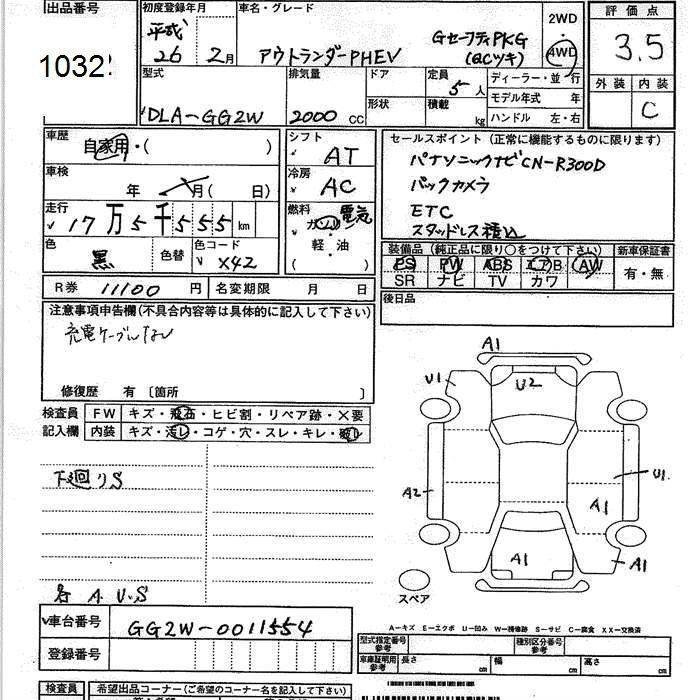 出品番号
1032
初度登録年月
平成
26 2月
車名・グレード
アウトランダーPHEV
Gセーフティ PKG
(QCツキ)
2WD
4WD
評価点
3.5
外装 内装
C
型式
DLA-GG2W
排気量
2000 CC
ドア
形状
定員
5人
積載
kg
ディーラー・並行
モデル年式 年
ハンドル 左・右
車歴
自家用・( )
車検
年 月( 日)
走行
17万5千555 km
色
黒
色替
色コード
X42
シフト
AT
冷房
AC
燃料
ガソリン 電気
軽・油
( )
セールスポイント (正常に機能するものに限ります)
パナソニックナビCN-R300D
バックカメラ
ETC
スタッドレス積込
装備品 (純正品に限り○をつけて下さい)
PS PW ABS エアB AW
SR ナビ TV カワ
新車保証書
有・無
後日品
R券 11100 円
名変期限 月 日
注意事項申告欄(不具合内容等は具体的に記入して下さい)
充電ケーブルなし
修復歴 有 〔箇所 〕
検査員
記入欄
FW キズ・飛石・ヒビ割・リペア跡・×要
内装 キズ・汚レ・コゲ・穴・スレ・キレ・破レ
下廻りS
各 A U.S
A1
U1
U2
A2
U1
A1
A1
A1
スペア
A-キズ E-エクボ U-凹み W-補修跡 S-サビ C-腐食 XX-交換済
車台番号
GG2W-0011554
登録番号
型式指定番号
参考
種別区分番号
参考
車庫証明用
参考
長さ cm
幅 cm
高さ cm
検査員
希望出品コーナー(ご希望のコーナー名を記入して下さい)